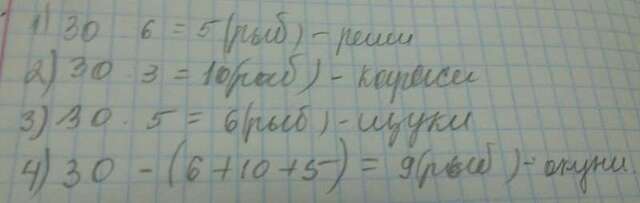 1) 30 6 = 5 (рыб) - лещи
2) 30 · 3 = 10 (рыб) - караси
3) 30 · 5 = 6 (рыб) - щуки
4) 30 - (6 + 10 + 5) = 9 (рыб) - окуни.